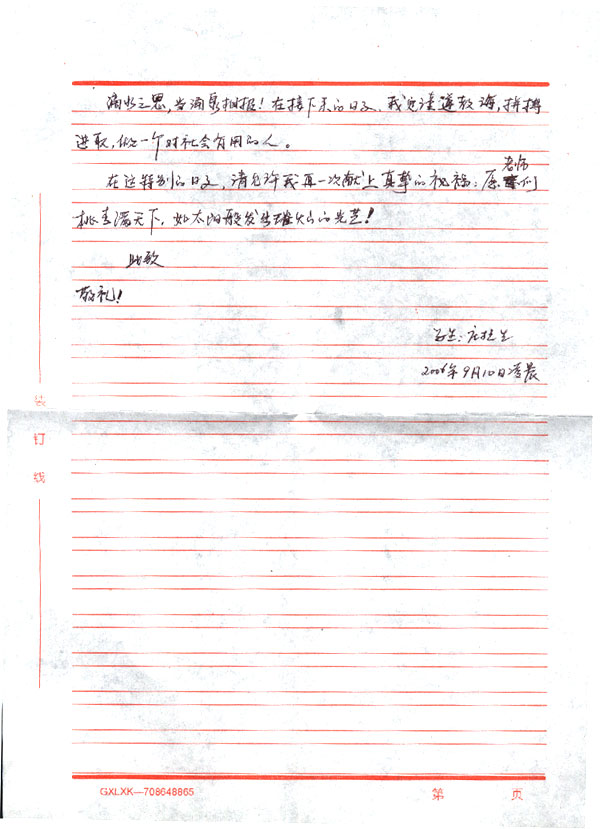 滴水之恩,当涌泉相报!在接下来的日子,我定谨遵教诲,拼搏
进取,做一个对社会有用的人。
在这特别的日子,请允许我再一次献上真挚的祝福:愿老师们
桃李满天下,如太阳般发出雄灿的光芒!
此致
敬礼!
学生:庄
2006年9月10日凌晨
装
订
线
GXLXK—708648865
第 页